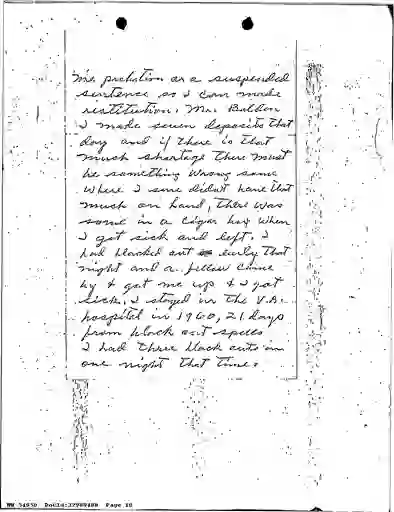 me probation or a suspended
sentence so I can make
restitution. Mr. Baldon
I made seven deposits that
day and if there is that
much shortage there must
be something wrong some
where I sure didn't have that
much on hand, there was
some in a cigar box when
I got sick and left. I
had blacked out early that
night and a fellow came
by & got me up & I got
sick. I stayed in the V.A.
hospital in 1960, 21 days
from black out spells
I had three black outs in
one night that time.
Page 10